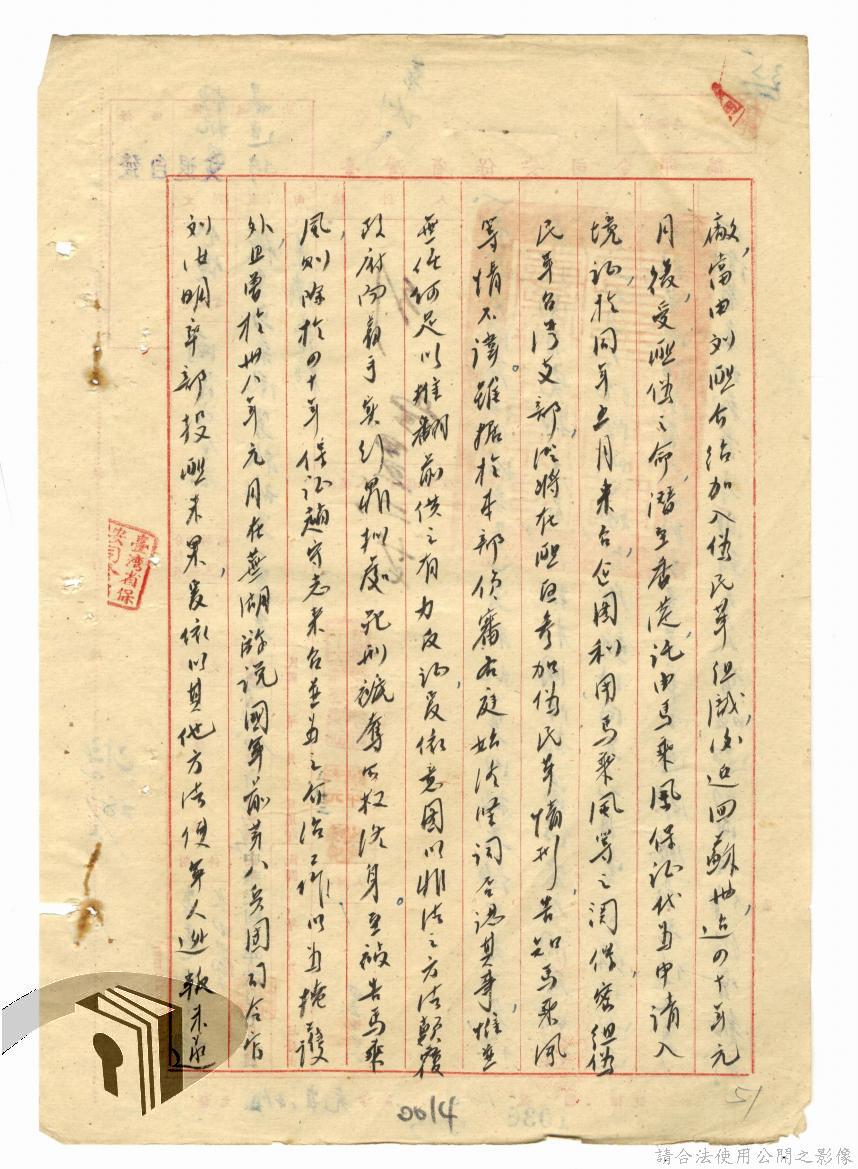 廠，當由刘匪介紹加入偽民革組織，後返回蘇州，迨四十年元
月後，受匪偽之命，潛至香港，託由馬乘風保証代為申請入
境証，於同年五月来台，企圖利用馬乘風等之関係，密組偽
民革台湾支部，從將在匪區参加偽民革情形，告知馬乘風
等情不諱。雖据於本部偵審右庭始終堅詞否認其事，惟並
無任何足以推翻前供之有力反証，爰依意圖以非法之方法顛覆
政府而着手实行罪拟處死刑褫奪公权終身。至被告馬乘
風，則除於四十年保証趙守志来台並為之介紹工作，以為掩護
外，且曾於卅八年元月在蕪湖游説國軍前第八兵團司令官
刘汝明率部投匪未果，爰依以其他方法使軍人逃叛未遂
臺灣省保
安司令部
4100
51
請合法使用公開之影像